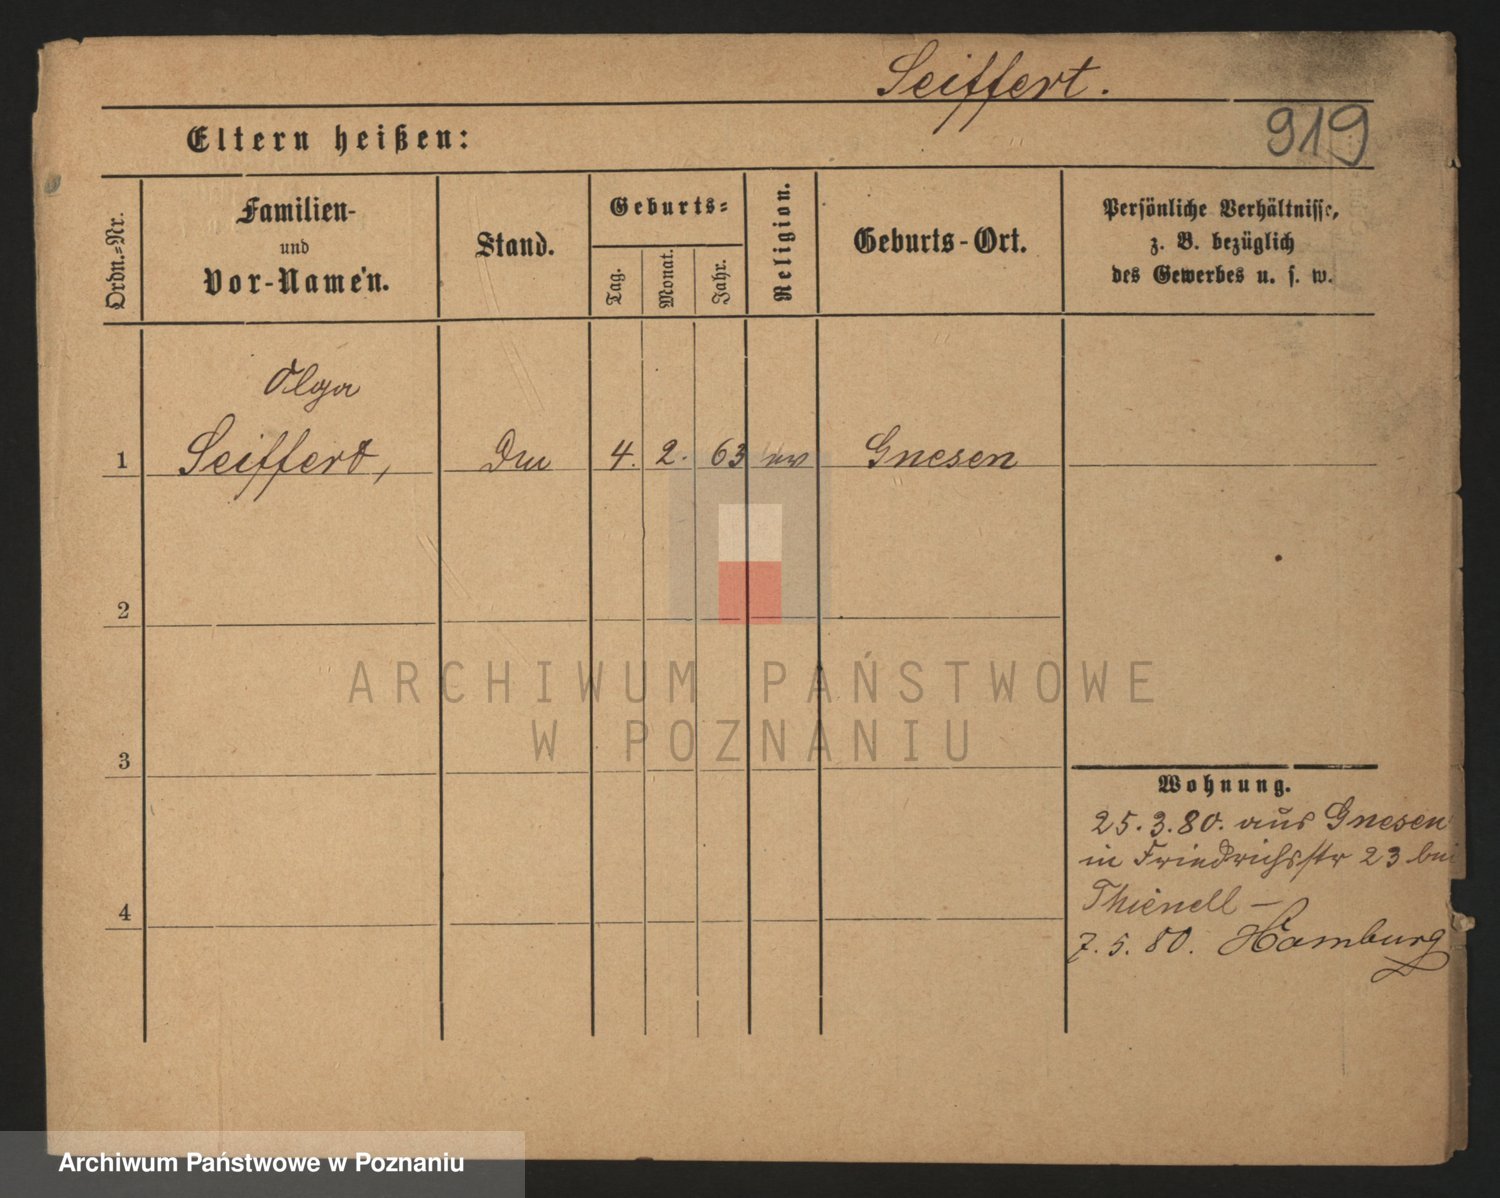 Seiffert.
919
Eltern heißen:
Ordn.-Nr.
Familien-
und
Vor-Namen.
Stand.
Geburts-
Tag.
Monat.
Jahr.
Religion.
Geburts-Ort.
Persönliche Verhältnisse,
z. B. bezüglich
des Gewerbes u. s. w.
Olga
1 Seiffert, 4. 2. 63 ev Gnesen
2
3
4
Wohnung.
25.3.80. aus Gnesen
in Friedrichsstr 23 bei
Thienell –
7.5.80. Hamburg
ARCHIWUM PAŃSTWOWE
W POZNANIU
Archiwum Państwowe w Poznaniu